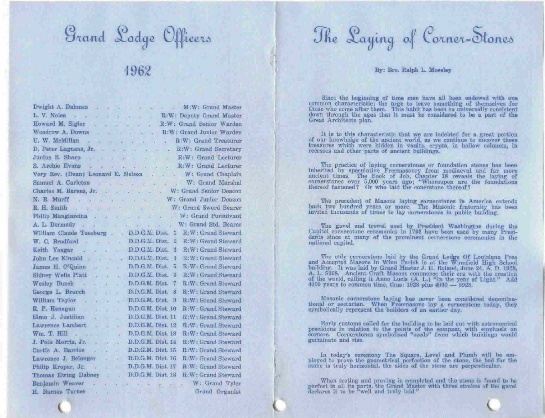 Grand Lodge Officers
1962
Dwight A. M:W: Grand Master
L. V. R:W: Deputy Grand Master
Howard M. Sigler R:W: Grand Senior Warden
Woodrow A. Downs R:W: Grand Junior Warden
U. W. McMillan R:W: Grand Treasurer
D. Peter Laguens, Jr. R:W: Grand Secretary
Justus S. Sharp R:W: Grand Lecturer
S. Archie Evans R:W: Grand Lecturer
Very Rev. (Dean) Leonard E. W: Grand Chaplain
Samuel A. Carleton W: Grand Marshal
Charles M. Jr. W: Grand Senior Deacon
N. B. Murff W: Grand Junior Deacon
R. E. Smith W: Grand Sword Bearer
Philip W: Grand Pursuivant
A. L. W: Grand Std. Bearer
William Claude D.D.G.M. Dist. 1 R:W: Grand Steward
W. C. Bradford D.D.G.M. Dist. 2 R:W: Grand Steward
Keith Yeager D.D.G.M. Dist. 3 R:W: Grand Steward
John Lee Kincaid D.D.G.M. Dist. 4 R:W: Grand Steward
James H. O'Quinn D.D.G.M. Dist. 5 R:W: Grand Steward
Sidney Wells Platt D.D.G.M. Dist. 6 R:W: Grand Steward
Wesley D.D.G.M. Dist. 7 R:W: Grand Steward
George L. Branch D.D.G.M. Dist. 8 R:W: Grand Steward
William Taylor D.D.G.M. Dist. 9 R:W: Grand Steward
R. F. D.D.G.M. Dist. 10 R:W: Grand Steward
Elmo J. D.D.G.M. Dist. 11 R:W: Grand Steward
Laurence Lambert D.D.G.M. Dist. 12 R:W: Grand Steward
Wm. T. Hill D.D.G.M. Dist. 13 R:W: Grand Steward
J. Felix Morris, Jr. D.D.G.M. Dist. 14 R:W: Grand Steward
Curtis A. D.D.G.M. Dist. 15 R:W: Grand Steward
Lawrence J. D.D.G.M. Dist. 16 R:W: Grand Steward
Philip Jr. D.D.G.M. Dist. 17 R:W: Grand Steward
Thomas Ewing Dabney D.D.G.M. Dist. 18 R:W: Grand Steward
Benjamin W: Grand Tyler
H. Grand Organist
The Laying of Corner-Stones
By: Bro. Ralph L. Moseley
Since the beginning of time men have all been endowed with one
common characteristic; the urge to leave something of themselves for
those who come after them. This habit has been so universally consistent
down through the ages that it must be considered to be a part of the
Great Architects plan.
It is to this characteristic that we are indebted for a great portion
of our knowledge of the ancient world, as we continue to uncover these
treasures which were hidden in vaults, crypts, in hollow columns, in
recesses and other parts of ancient buildings.
The practice of laying cornerstones or foundation stones has been
inherited by speculative Freemasonry from medieval and far more
ancient times. The Book of Job, Chapter 38 records the laying of
cornerstones over 5,000 years ago: "Whereupon are the foundations
thereof fastened? Or who laid the cornerstone thereof?
The precedent of Masons laying cornerstones in America extends
back two hundred years or more. The Masonic fraternity has been
invited thousands of times to lay cornerstones in public building.
The gavel and trowel used by President Washington during the
Capitol cornerstone ceremonies in 1793 have been used by many Presi-
dents since at many of the prominent cornerstone ceremonies in the
national capital.
The only cornerstone laid by the Grand Lodge Of Louisiana Free
and Accepted Masons in Winn Parish is at the Winnfield High School
building. It was laid by Grand Master J. E. June 24, A. D. 1928,
A. L. 5928. Ancient Craft Masons commence their era with the creation
of the world, calling it Anno Lucis (A. L.) "in the year of Light." Add
4000 years to common time, thus 1928 plus 4000 — 5928.
Masonic cornerstone laying has never been considered denomina-
tional or sectarian. When Freemasons lay a cornerstone today, they
symbolically represent the builders of an earlier day.
Early customs called for the building to be laid out with astronomical
precisions in relation to the points of the compass, with emphasis on
corners. Cornerstones symbolised "seeds" from which buildings would
germinate and rise.
In today's ceremony The Square, Level and Plumb will be em-
ployed to prove the geometrical perfection of the stone, the bed for the
stone is truly horizontal, the sides of the stone are perpendicular.
When testing and proving is completed and the stone is found to be
perfect in all its parts, the Grand Master with three strokes of the gavel
declares it to be "well and truly laid."